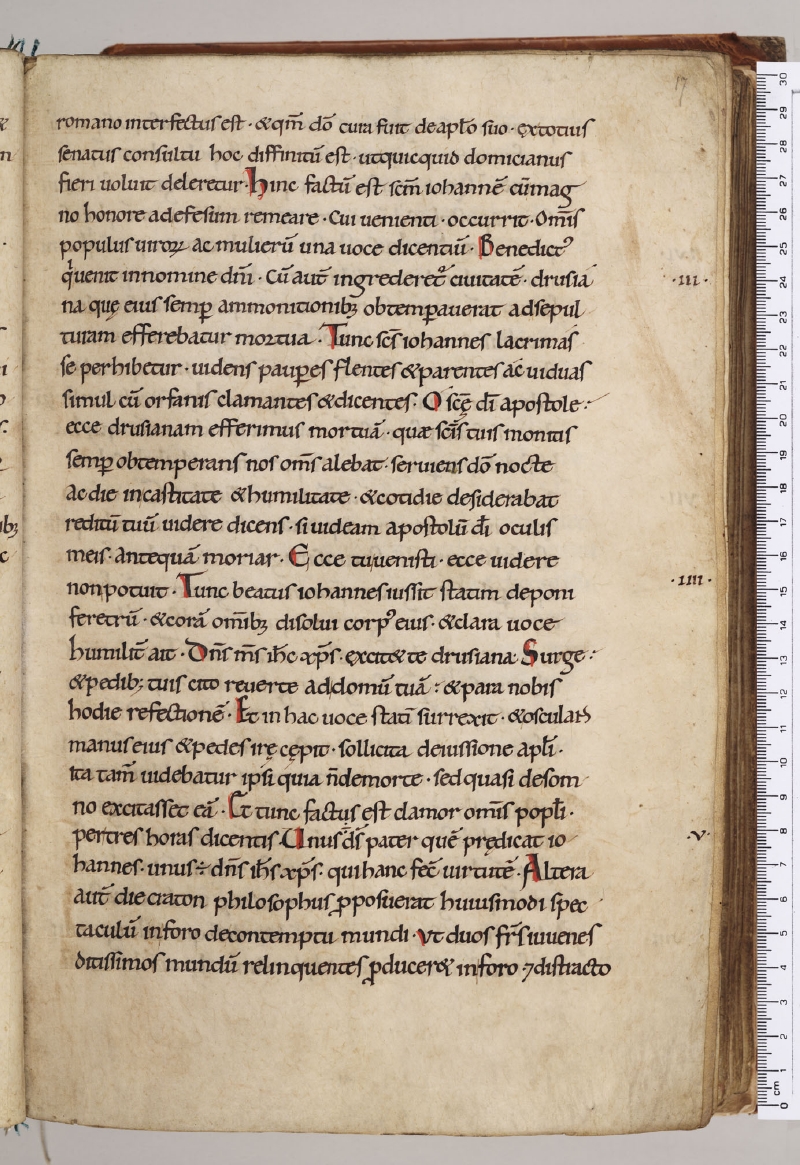 17
romano interfectus est · &qm̄ dō cura fuit de aplō suo · ex totius
senatus consultu hoc diffinitū est · ut quicquid domicianus
fieri uoluit deleretur · Hinc factū est scm̄ iohannē cū mag
no honore ad efesum remeare · Cui uenienti · occurrit · Omīs
populus uiroꝝ ac mulierū una uoce dicentiū · Benedictꝰ
qͥ uenit in nomine dn̄i · Cū aut̄ ingrederet᷒ ciuitatē · drusia ·iii·
na quę eius semꝑ ammonitionibꝫ obtemꝑauerat ad sepul
turam efferebatur mortua · Tunc scs̄ iohannes lacrimas
se perhibetur · uidens pauꝑes flentes & parentes ac uiduas
simul cū orfanis clamantes & dicentes · O scę̄ dī apostole ·
ecce drusianam efferimus mortuā · quæ scīs tuis monitis
semꝑ obtemperans nos om̄s alebat · seruiens dō nocte
ac die in castitate & humilitate · & cotidie desiderabat
reditū tuū uidere dicens · si uideam apostolū dī oculis
meis · antequā moriar · Ecce tu uenisti · ecce uidere
non potuit · Tunc beatus iohannes iussit statim deponi ·iiii·
feretrū · & corā omībꝫ disolui corpꝰ eius · & clara uoce
humilit̄ ait · Dn̄s m̄s ih̄c xp̄s · excit& te drusiana Surge ·
& pedibꝫ tuis cito reuerte ad domū tuā : & para nobis
hodie refectionē · Et in hac uoce statī surrexit · & osculari
manus eius & pedes irę cępit · sollicita de iussione aplī ·
Ita tam̄ uidebatur ipsi quia n̄ de morte · sed quasi de som
no excitasset eā · Et tunc factus est clamor om̄is poplī ·
per tres horas dicentis · Unus ds̄ pater quē prędicat io ·v·
hannes · unus ÷ dn̄s ih̄s xp̄s · qui hanc fec̄ uirtutē · Altera
aut̄ die craton philosophus ꝓposuerat huiusmodi spec
taculū in foro de contemptu mundi · Vt duos frs̄ iuuenes
ditissimos mundū relinquentes ꝓducer& in foro · ⁊ distracto